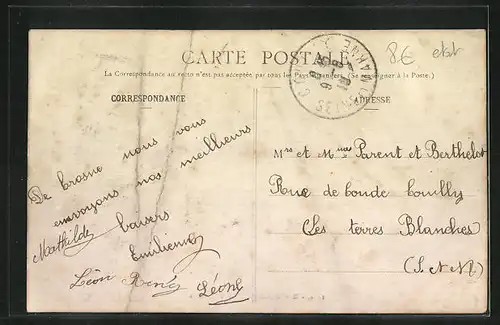 8€
CARTE POSTALE
La Correspondance au recto n'est pas acceptée par tous les Pays étrangers. (Se renseigner à la Poste.)
CORRESPONDANCE
ADRESSE
De brosne nous vous
envoyons nos meilleurs
baisers
Mathilde
Emilienne
Léon René Léony
Mrs et Mmes Parent et Berthelot
Rue de bonde bouilly
Les terres Blanches
(S. N. M.)